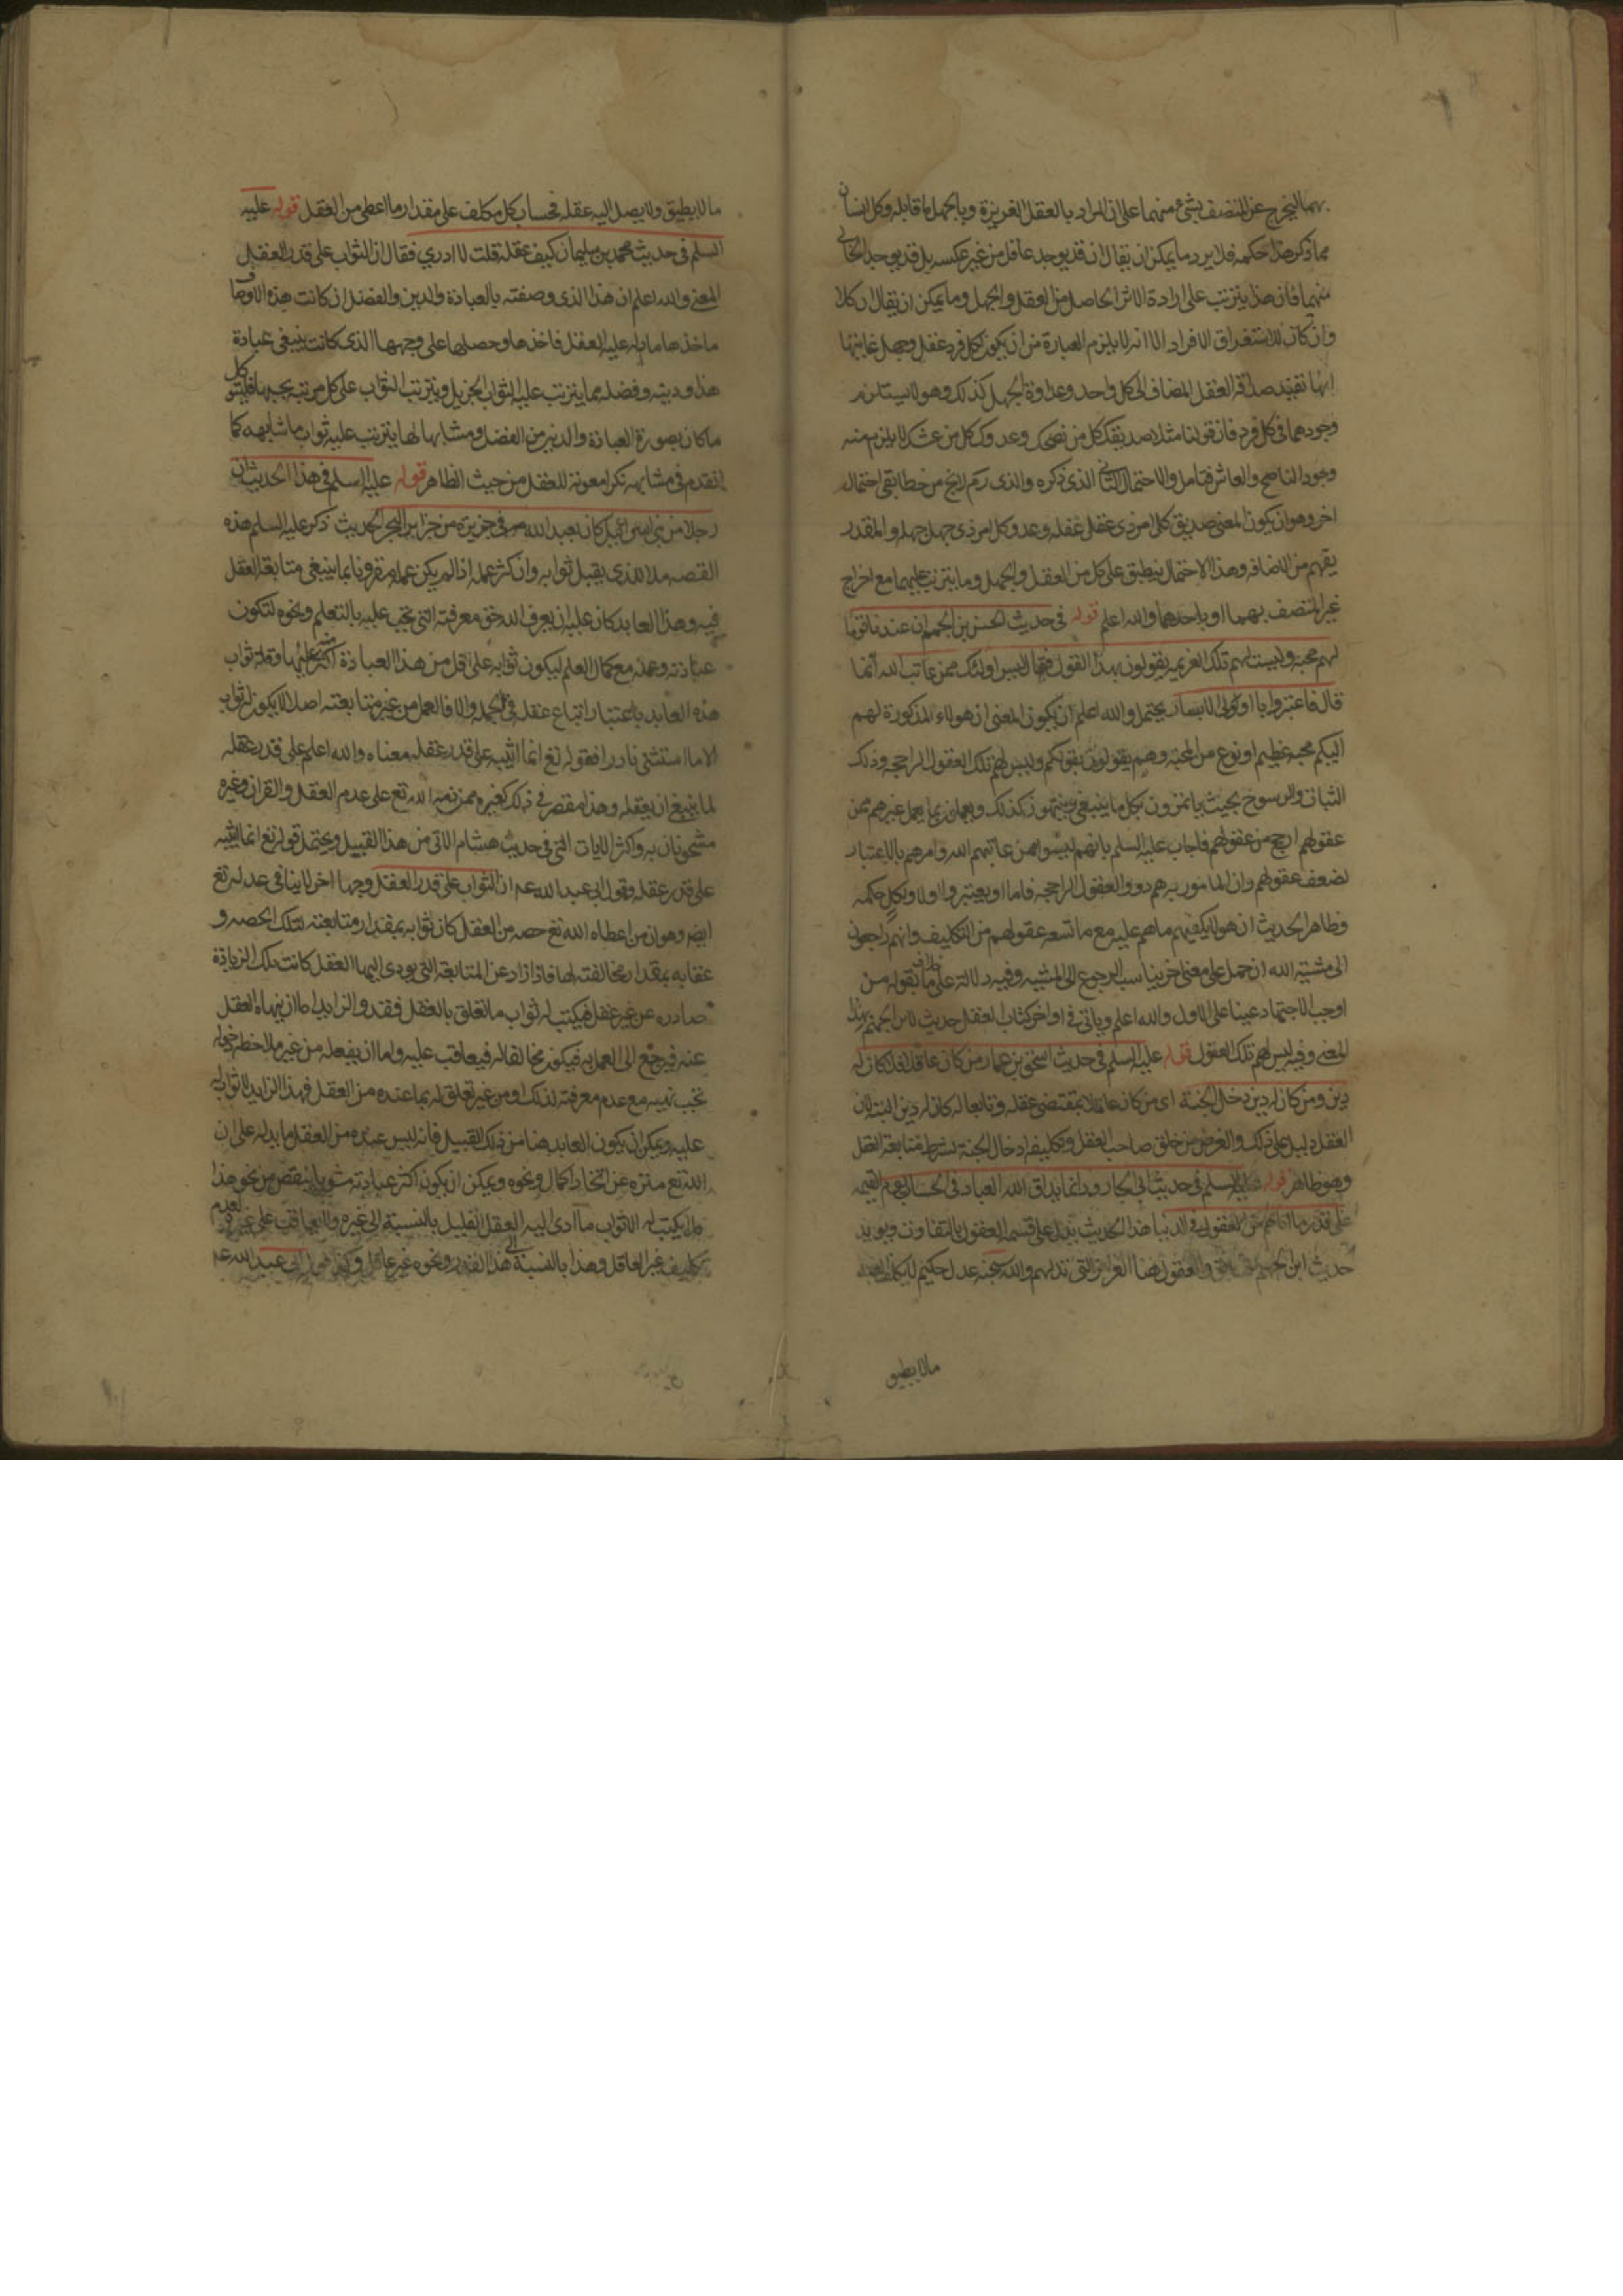 بهما ليخرج عن المتصف بشئ منهما على ان المراد بالعقل الغريزة وبالجهل ما قابله وكل انسان
مما ذكر هذا حكمه فلا يرد ما يمكن ان يقال ان قد يوجد عاقل من غير عكسه بل قد يوجد الخالي
منهما فان هذا يترتب على ارادة الاثر الحاصل من العقل والجهل وما يمكن ان يقال ان كلا
وان كان للاستغراق الافراد الا انه لا يلزم العبارة من ان يكون لكل فرد عقل وجهل غايتها
انها تفيد صداقة العقل المضاف الى كل واحد وعداوة الجهل كذلك وهو لا يستلزم
وجودهما في كل فرد فان قولنا مثلا صديقك كل من نصحك وعدوك كل من غشك لا يلزم منه
وجود الناصح والعاش فتامل والاحتمال الثاني الذي ذكره والذي رجم لايخ من خطا بقي احتمال
اخر وهو ان يكون المعنى صديق كل امرء ذي عقل عقله وعدو كل امرء ذي جهل جهله والمقدر
يفهم من الاضافه وهذا الاحتمال ينطبق على كل من العقل والجهل وما يترتب عليهما مع اخراج
غير المتصف بهما او باحدهما والله اعلم قوله في حديث الحسن بن الجهم ان عندنا قوما
لهم محبه وليست لهم تلك العزيمه يقولون بهذا القول فقال ليس اولئك ممن عاتب الله انما
قال فاعتبروا يا اولي الابصار يحتمل والله اعلم ان يكون المعنى ان هولاء المذكورة لهم
اليكم محبه عظيم او نوع من المحبة وهم يقولون بقولكم وليس لهم تلك العقول الراجحه وذلك
الثبات والرسوخ بحيث ياتمرون بكل ما ينبغي وينتهون كذلك ويعملون بما يعمل غيرهم ممن
عقولهم ارجح من عقولهم فاجاب عليه السلم بانهم ليسوا ممن عاتبهم الله وامرهم بالاعتبار
لضعف عقولهم وان المامور به هم ذوو العقول الراجحه فاما او يعتبروا ولا ولكل حكمه
وظاهر الحديث ان هولاء يكفيهم ما هم عليه مع ما تسعه عقولهم من التكاليف وانهم راجعون
الى مشيته الله ان حمل على معنى اخر يناسب الرجوع الى المشيه وفيه دلالة على خلاف ما يقوله من
اوجب الاجتهاد عينا على الاول والله اعلم وياتي في اواخر كتاب العقل حديث لابن الجهم بهذا
المعنى وفيه ليس لهم تلك العقول قوله عليه السلم في حديث اسحق بن عمار من كان عاقلا كان له
دين ومن كان له دين دخل الجنة اي من كان عاملا بمقتضى عقله وتابعا له كان له دين البته لان
العقل دليل على ذلك والغرض من خلق صاحب العقل وتكليفه ادخال الجنة بشرط متابعة العقل
وهو ظاهر قوله عليه السلم في حديث ابي الجارود انما يداق الله العباد في الحساب يوم القيمه
على قدر ما اتاهم من العقول في الدنيا هذا الحديث يدل على قسمه العقول بالتفاوت ويويد
حديث ابن الجهم والعقول هنا الغرائز التي تدلهم والله سبحنه عدل حكيم لا يكلف العبد
ما لا يطيق
ما لا يطيق ولا يصل اليه عقله فحساب كل مكلف على مقدار ما اعطى من العقل قوله عليه
السلم في حديث محمد بن سليمان كيف عقله قلت لا ادري فقال ان الثواب على قدر العقل
المعنى والله اعلم ان هذا الذي وصفته بالعبادة والدين والفضل ان كانت هذه الاوصاف
ماخذها ما يدله عليه العقل فاخذها وحصلها على وجهها الذي كانت ينبغي عبادة
هذا ودينه وفضله مما يترتب عليه الثواب الجزيل ويترتب الثواب على كل مرتبه بحسبها فليس كل
ما كان بصورة العبادة والدين من الفضل ومشابها لها يترتب عليه ثواب ما شابهه كما
تقدم في مشابهه نكرا معونة للعقل من حيث الظاهر قوله عليه السلم في هذا الحديث ان
رجلا من بني اسرائيل كان يعبد الله في جزيرة من جزاير البحر الحديث ذكر عليه السلم هذه
القصه مثلا للذي يقبل ثوابه وان كثر عمله اذا لم يكن عمله مقرونا بما ينبغي متابقة العقل
فيه وهذا العابد كان عليه ان يعرف الله حق معرفته التي تجب عليه بالتعلم ونحوه لتكون
عبادته وعمله مع كمال العلم ليكون ثوابه على اقل من هذا العبادة اكثر منه عليها وقلة ثواب
هذه العابد باعتبار اتباع عقله في الجمله والا فالعمل من غير متابعته اصلا لا يكون له ثواب
الا ما استثنى نادرا فقوله تع انما اثيبه على قدر عقله معناه والله اعلم على قدر عقله
لما ينبغي ان يعقله وهذا مقصر في ذلك كغيره ممن ذمه الله تع على عدم العقل والقران وغيره
مشحونان به واكثر الايات التي في حديث هشام الاتي من هذا القبيل ويحتمل قوله تع انما اثيبه
على قدر عقله وقول ابي عبد الله عه ان الثواب على قدر العقل وجها اخر لا ينافي عدله تع
ايضا وهو ان من اعطاه الله تع حصه من العقل كان ثوابه بمقدار متابعته لتلك الحصه و
عقابه بمقدار مخالفته لها فاذا زاد عن المتابعة التي يودي اليها العقل كانت تلك الزيادة
صادره عن غير عقل فيكتب له ثواب ما تعلق بالعقل فقد والزايد اما ان ينهاه العقل
عنه فيرجع الى العمل به فيكون مخالفا له فيعاقب عليه واما ان يفعله من غير ملاحظه دخوله
تحب نهيه مع عدم معرفته لذلك او من غير تعلق له بما عنده من العقل فهذا الزايد لا ثواب له
عليه ويمكن ان يكون العابد هنا من ذلك القبيل فانه ليس عنده من العقل ما يدله على ان
الله تع منزه عن اتخاذ الحمار ونحوه ويمكن ان يكون اكثر عبادته مشوبا بنقص من نحو هذا
فلم يكتب له الا ثواب ما ادى اليه العقل القليل بالنسبة الى غيره ولا يعاقب على غيره لعدم
تكليف غير العاقل وهذا بالنسبة الى هذا القدر ونحوه غير عاقل وكذا قول ابي عبد الله عه